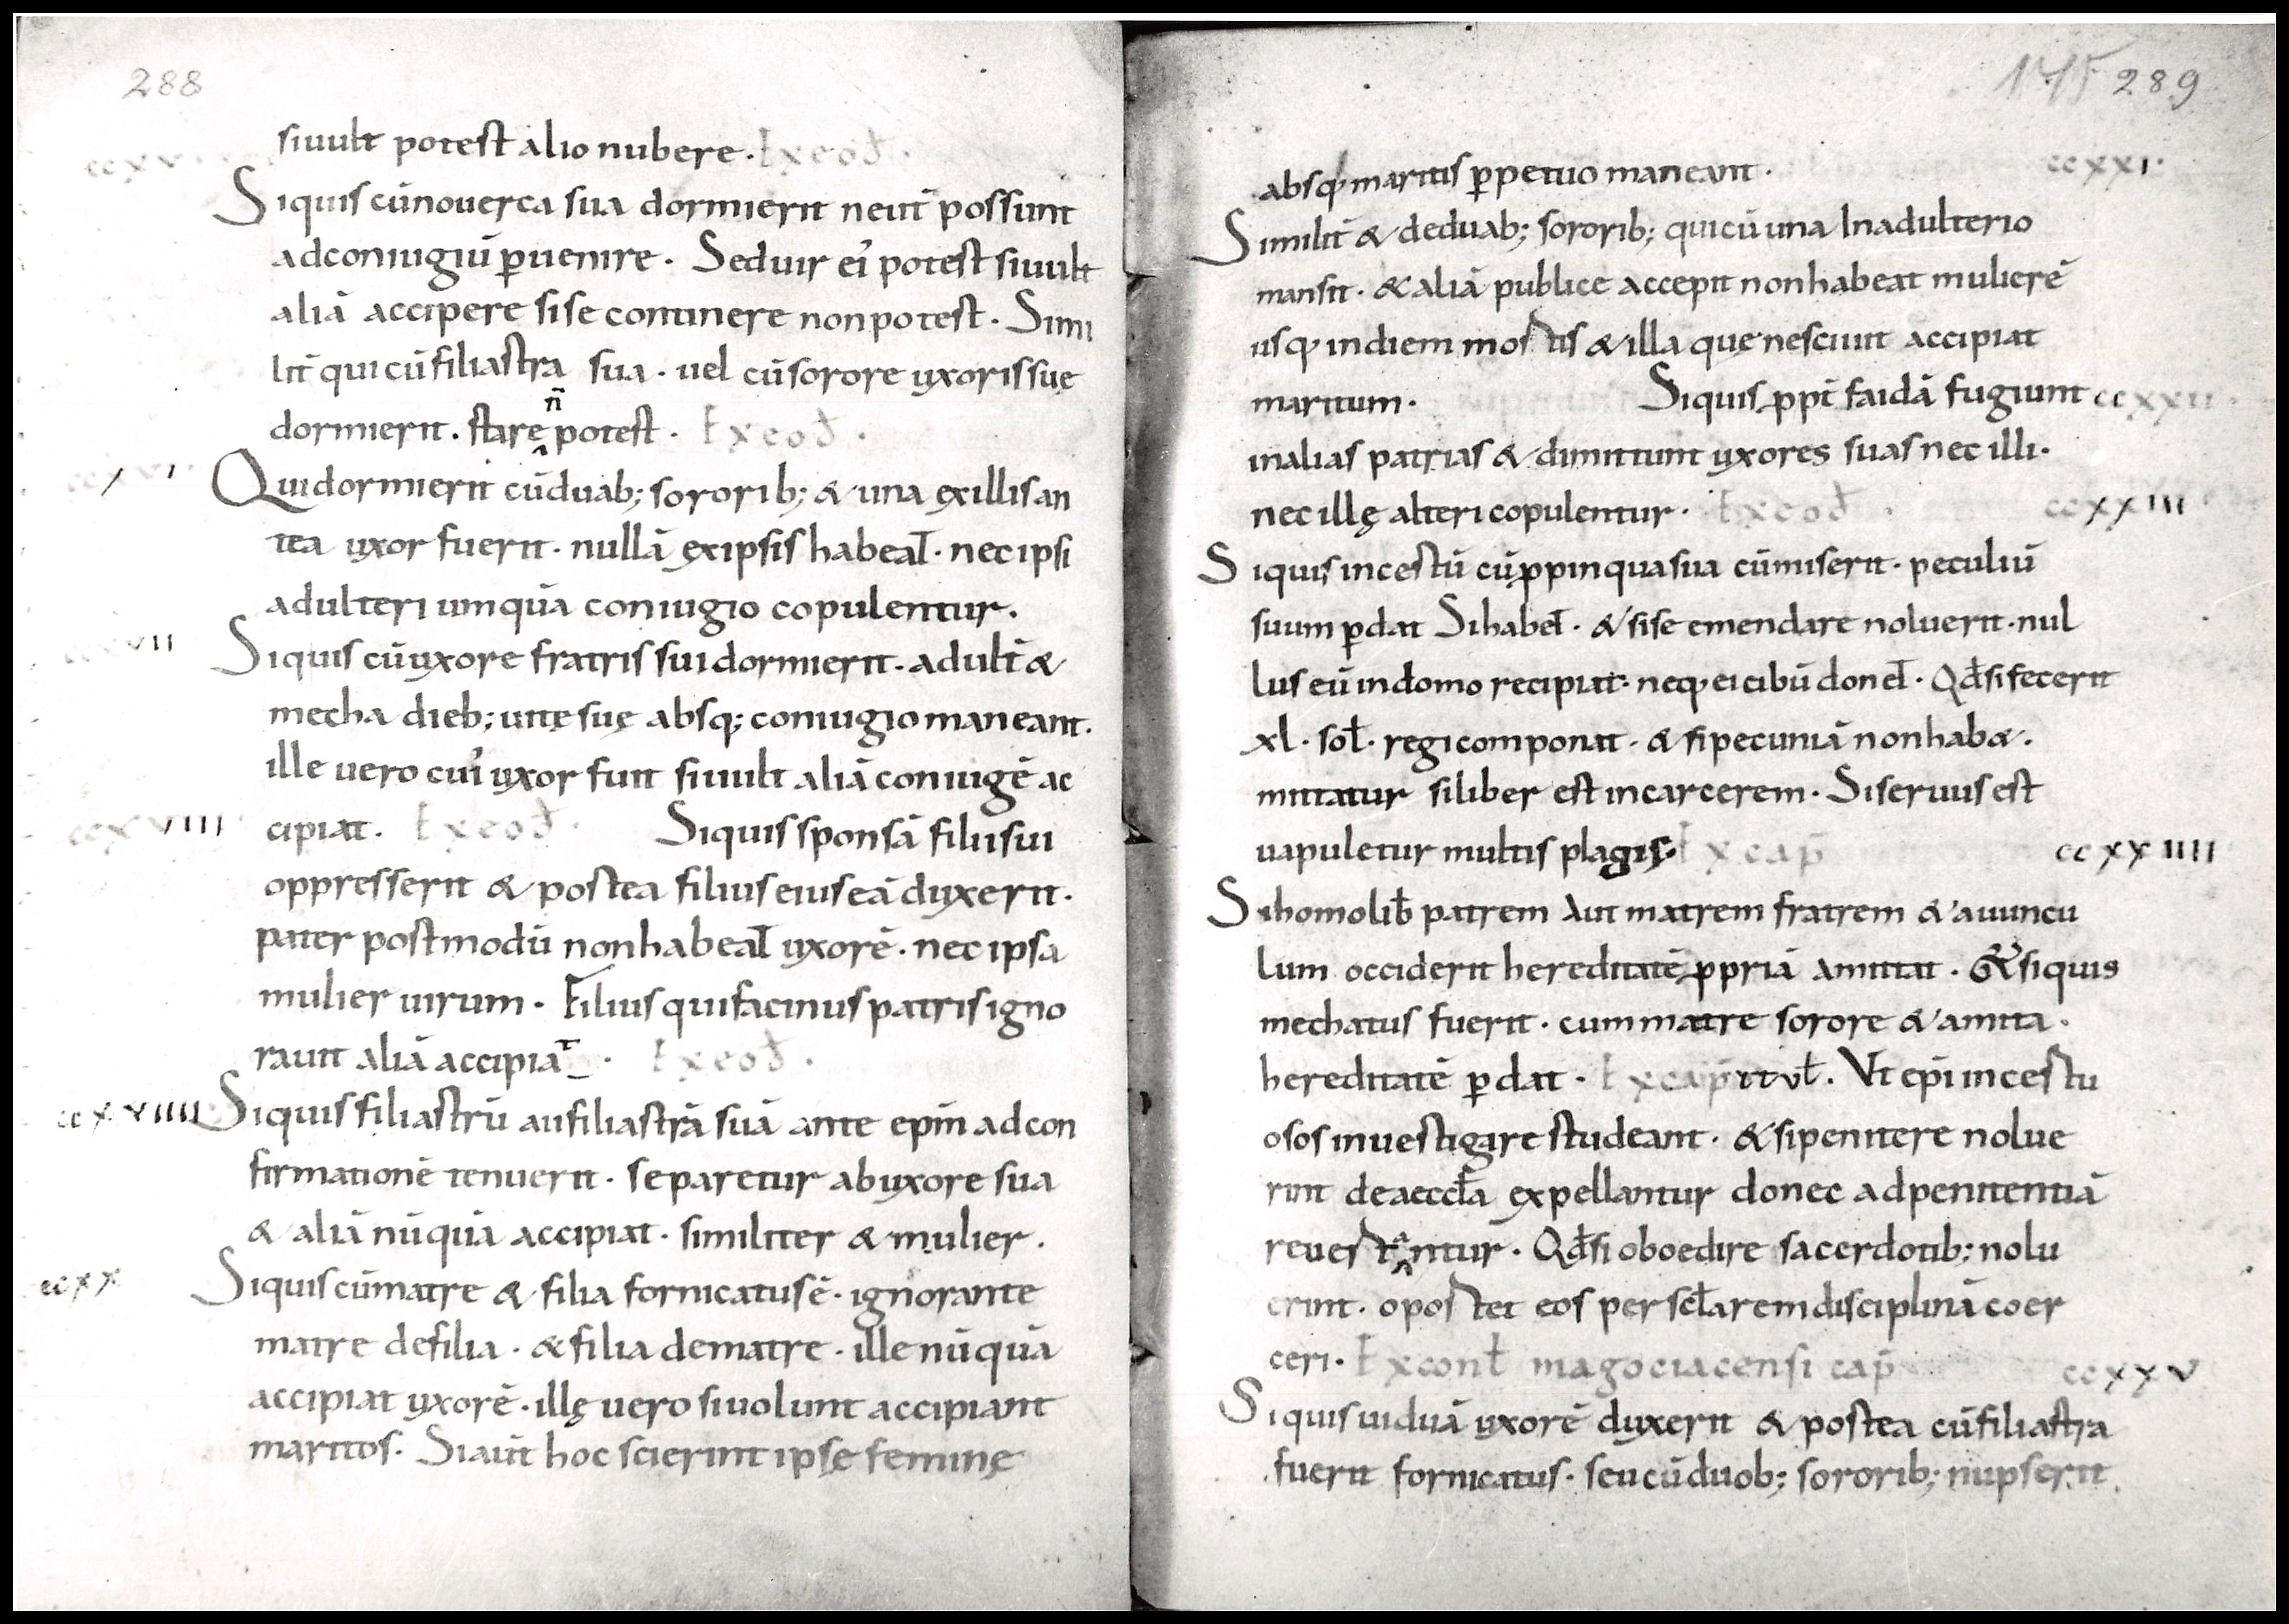 288
siuult potest alio nubere. Ex eod̄.
ccxv
Siquis cū nouerca sua dormierit neut̄ possunt
ad coniugiū p̱uenire. Sed uir ei᷒ potest siuult
aliā accipere si se continere non potest. Simi
lit̄ qui cū filiastra sua. uel cū sorore uxoris suę
dormierit. stare n̄ potest. Ex eod̄.
Qui dormierit cū duab; sororib; & una ex illis an
tea uxor fuerit. nullā ex ipsis habeat. nec ipsi
adulteri umquā coniugio copulentur.
ccxvii
Siquis cū uxore fratris sui dormierit. adult̄ &
mecha dieb; uitę suę absq; coniugio maneant.
ille uero cui᷒ uxor fuit siuult aliā coniugē ac
ccxviii
cipiat. Ex eod̄. Siquis sponsā filii sui
oppresserit & postea filius eius eā duxerit.
pater postmodū non habeat uxorē. nec ipsa
mulier uirum. Filius qui facinus patris igno
rauit aliā accipiat. Ex eod̄.
ccxviiii
Siquis filiastrū aū filiastrā suā ante ep̄m ad con
firmationē tenuerit. separetur ab uxore sua
& aliā nūquā accipiat. similiter & mulier.
ccxx
Siquis cū matre & filia fornicatus ē. ignorante
matre de filia. & filia de matre. ille nūquā
accipiat uxorē. illę uero si uolunt accipiant
maritos. Si aūt hoc scierint ipsę feminę
175 289
absq; maritis p̱petuo maneant.
ccxxi.
Similit̄ & de duab; sororib; qui cū una In adulterio
mansit. & aliā publice accepit non habeat mulierē
usq; in diem mortis & illa que nesciuit accipiat
maritum. Siquis ꝓpt̄ faidā fugiunt
ccxxii.
in alias patrias & dimittunt uxores suas nec illi.
nec illę alteri copulentur. Ex eod̄.
ccxxiii
Siquis incestū cū ꝓpinqua sua cūmiserit. peculiū
suum p̱dat Si habet. & si se emendare noluerit. nul
lus eū in domo recipiat. neq; ei cibū donet. Qd̄ si fecerit
xl. sol̄. regi componat. & si pecuniā non hab&.
mittatur si liber est in carcerem. Si seruus est
uapuletur multis plagis. Ex cap̄
ccxxiiii
Si homo lib̄ patrem Aut matrem fratrem & auuncu
lum occiderit hereditatē ꝓpriā Amittat. & siquis
mechatus fuerit. cum matre sorore & amita.
hereditatē p̱dat. Ex cap̄itul̄. Vt ep̄i incestu
osos inuestigare studeant. & si penitere nolue
rint de aeccl̄a expellantur donec ad penitentiā
reuertantur. Qd̄ si oboedire sacerdotib; nolu
erint. oportet eos per scl̄arem disciplinā coer
ceri. Ex conc̄ł magociacensi cap̄
ccxxv
Siquis uiduā uxorē duxerit & postea cū filiastra
fuerit fornicatus. seu cū duob; sororib; nupserit.